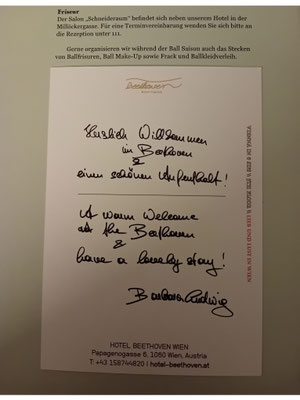 Friseur
Der Salon „Schneideraum“ befindet sich neben unserem Hotel in der
Millöckergasse. Für eine Terminvereinbarung wenden Sie sich bitte an
die Rezeption unter 111.
Gerne organisieren wir während der Ball Saison auch das Stecken
von Ballfrisuren, Ball Make-Up sowie Frack und Ballkleidverleih.
beethoven
Herzlich Willkommen
im Beethoven
&
einen schönen Aufenthalt!
A warm Welcome
at the Beethoven
&
have a lovely stay!
Barbara Ludwig
HOTEL BEETHOVEN WIEN
Papagenogasse 6, 1060 Wien, Austria
T: +43 158744820 | hotel-beethoven.at